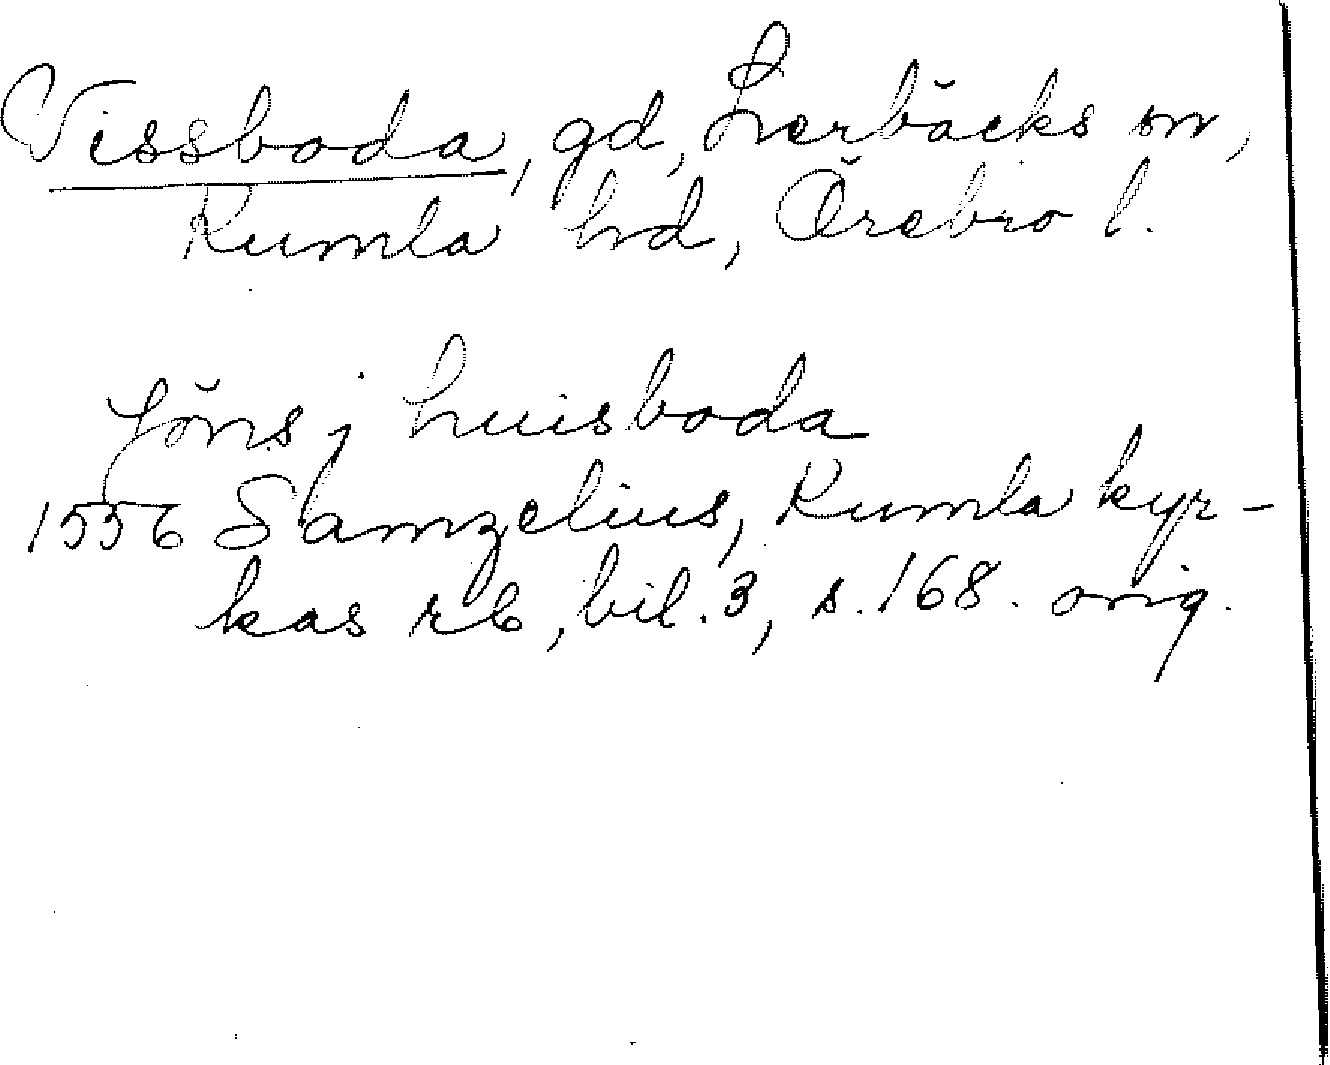 Vissboda, gd, Lerbäcks sn,
Kumla hd, Örebro l.
Jöns j huisboda
1556 Samzelius, Kumla kyr-
kas rb, bil. 3, s. 168. orig.